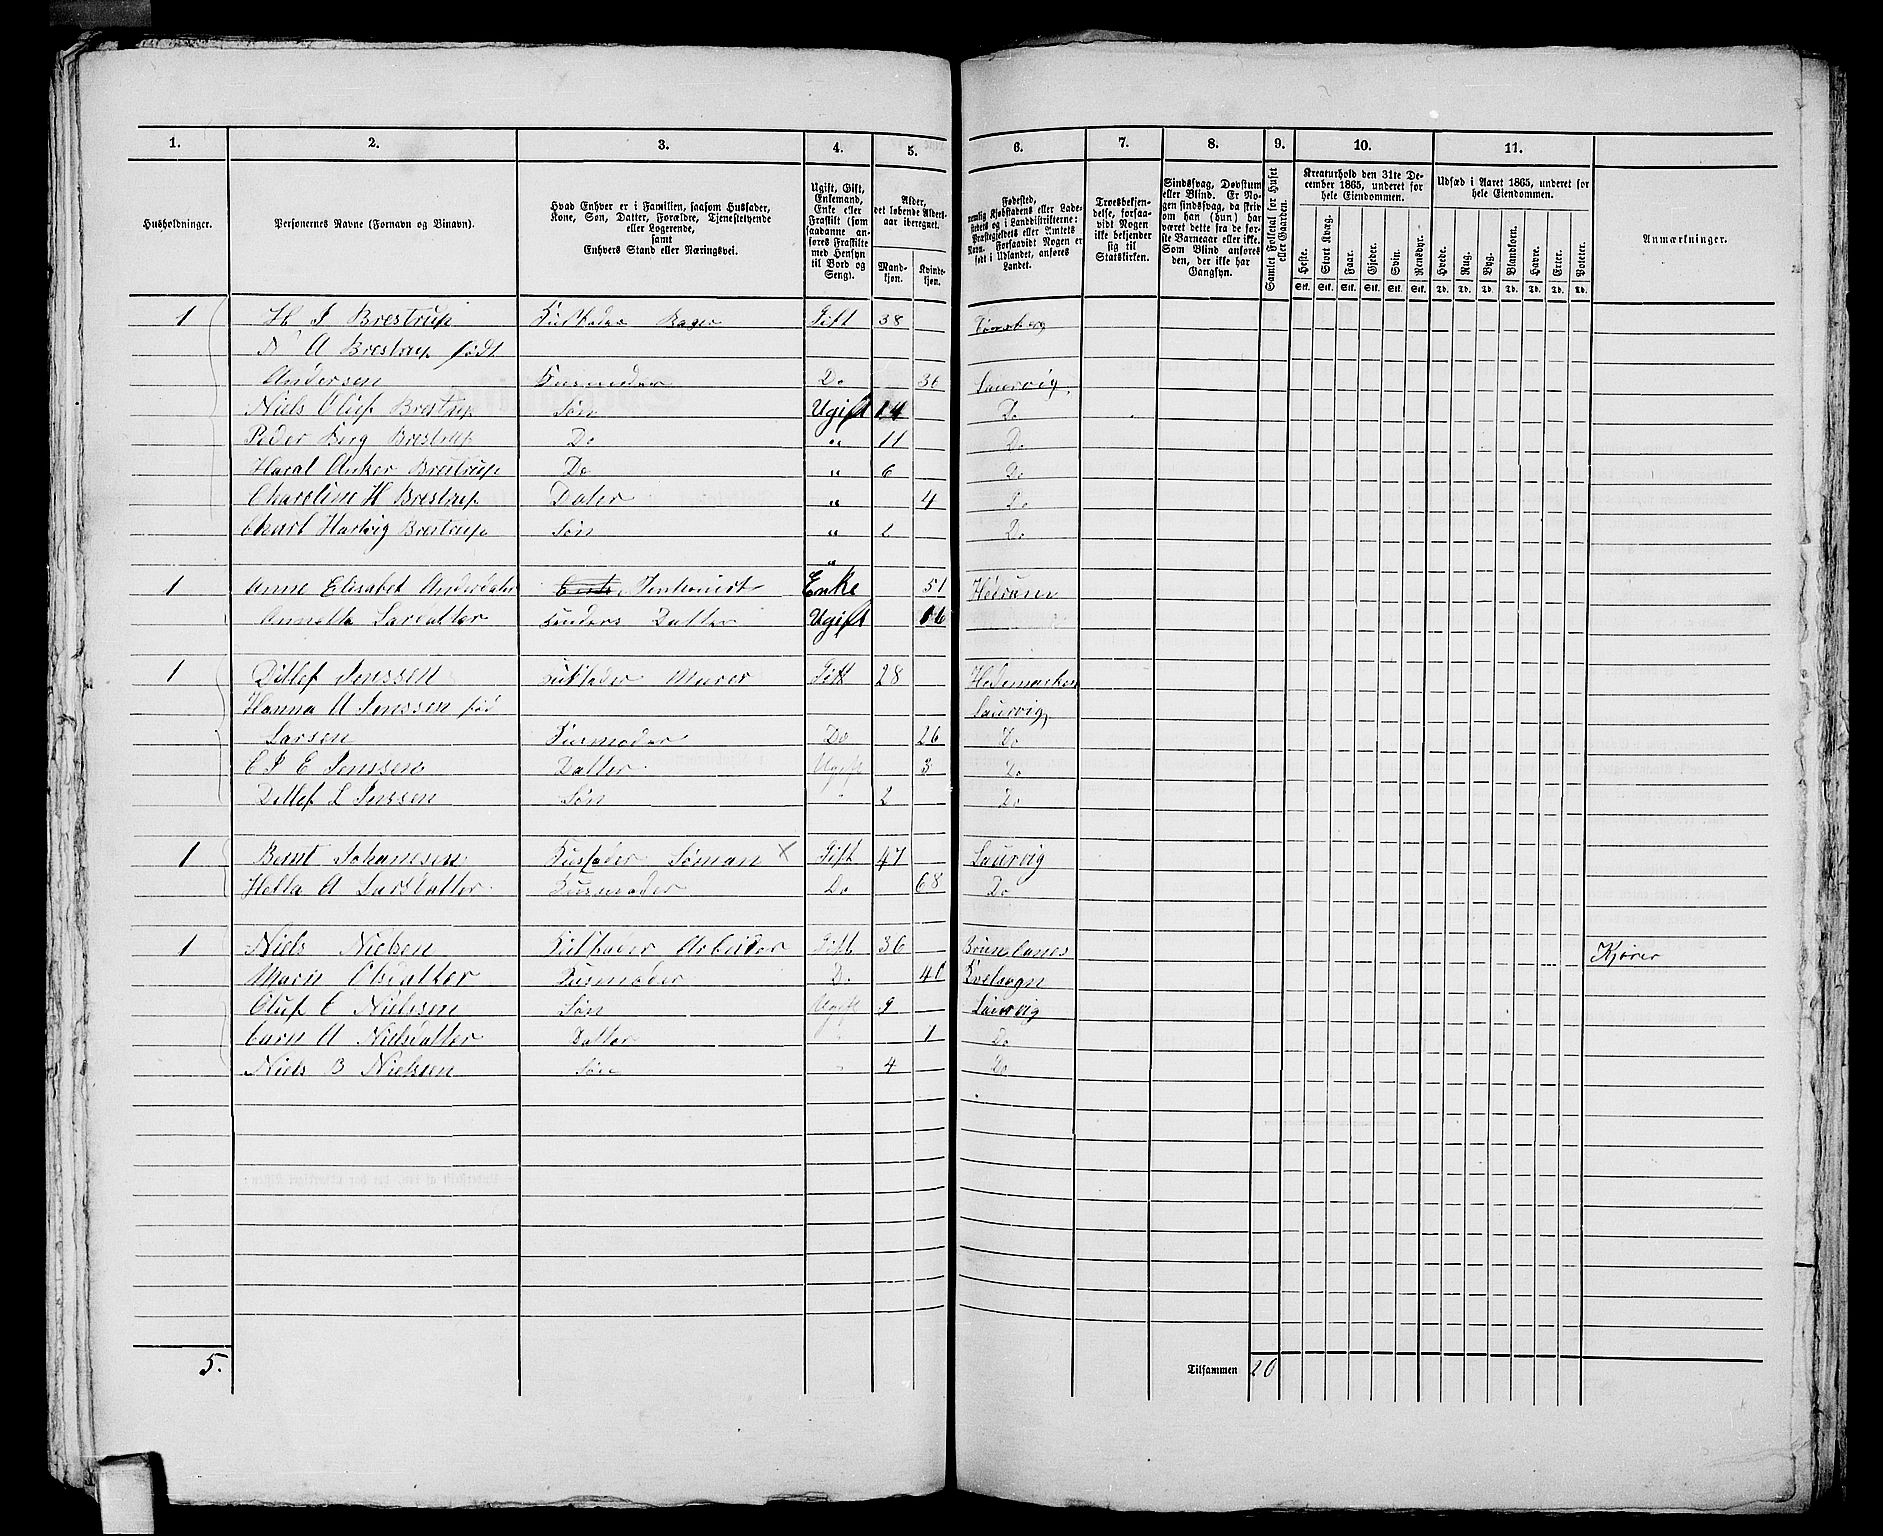 1. 2. 3. 4. 5. 6. 7. 8. 9. 10. 11.
Husholdninger.
Personernes Navne (Fornavn og Binavn).
Hvad Enhver er i Familien, saasom Husfader, Kone, Søn, Datter, Forældre, Tjenestetyende eller Logerende, samt Enhvers Stand eller Næringsvei.
Ugift, Gift, Enkemand, Enke eller Fraskilt (som saadanne anføres Fraskilte med Hensyn til Bord og Seng).
Alder, det løbende Alders-aar iberegnet.
Mand-kjøn. Kvinde-kjøn.
Fødested, nemlig Kjøbstadens eller Ladestedets og i Landdistrikterne: Præstegjeldets eller Amtets Navn. Forsaavidt Nogen er født i Udlandet, anføres Landet.
Troesbekjendelse, forsaavidt Nogen ikke bekjender sig til Statskirken.
Sindssvag, Døvstum eller Blind. Er Nogen sindssvag, da skrives om han (hun) har været dette fra de første Barneaar eller ikke. Som Blind anføres den, der ikke har Gangsyn.
Samlet Folketal for Huset eller Gaarden.
Kreaturhold den 31te December 1865, underet for hele Eiendommen.
Heste. Stort Kvæg. Faar. Gjeder. Svin. Rensdyr.
Stk. Stk. Stk. Stk. Stk. Stk.
Udsæd i Aaret 1865, underet for hele Eiendommen.
Hvede. Rug. Byg. Blandkorn. Havre. Erter. Poteter.
Td. Td. Td. Td. Td. Td. Td.
Anmærkninger.
1 H I Brestrup Husfader Bager Gift 38 Tønsberg
A Brestrup født
Andersen Husmoder Do 36 Laurvig
Niels Oluf Brestrup Søn Ugift 14 Do
Peder Berg Brestrup Do " 11 Do
Haral Anker Brestrup Do " 6 Do
Charoline H Brestrup Dater " 4 Do
Charl Hartvig Brestrup Søn " 2 Do
"
1 Anne Elisabet Andersdater Enke 51 Hedrum
Annette Larsdatter Hendes Datter Ugift 16
1 Ditlef Jenssen Husfader Murer Gift 28 Hedemarken
Hanna A Jenssen fød Laurvig
Larsen Husmoder Do 26 Do
C P E Jenssen Datter Ugift 3 Do
Ditlef L Jenssen Søn " 2 Do
1 Bernt Johannesen Husfader Søman X Gift 47 Laurvig
Hella A Larsdatter Husmoder Do 68 Do
1 Niels Nielsen Husfader Arbeider Gift 36 Brunlanes Kjører
Maren Olsdatter Husmoder Do 40 Hvelsogn
Oluf E Nielssen Søn Ugift 9 Laurvig
Carn A Nielsdatter Datter " 1 Do
Niels B Nielsen Søn " 4 Do
5. Tilsammen 20